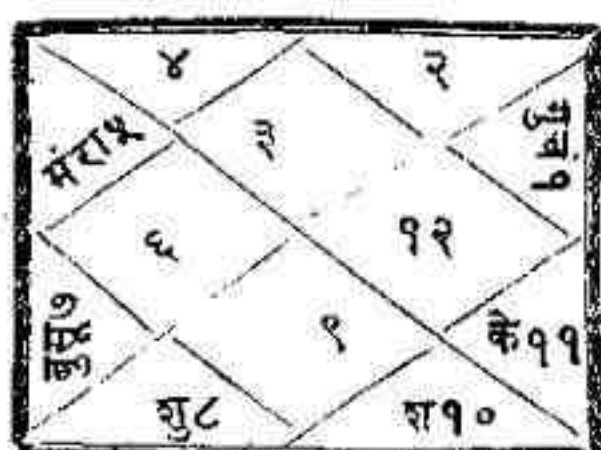 ४ २
३
मंरा५
गुचं१
६ १२
बुसू७
९
के११
शु८ श१०